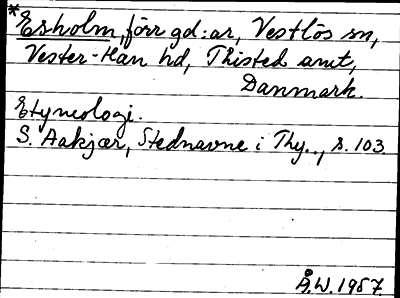 *Esholm, förr gd:ar, Vestlös sn,
Vester-Han hd, Thisted amt,
Danmark.
Etymologi.
S. Aakjær, Stednavne i Thy., s. 103.
Å.W. 1957